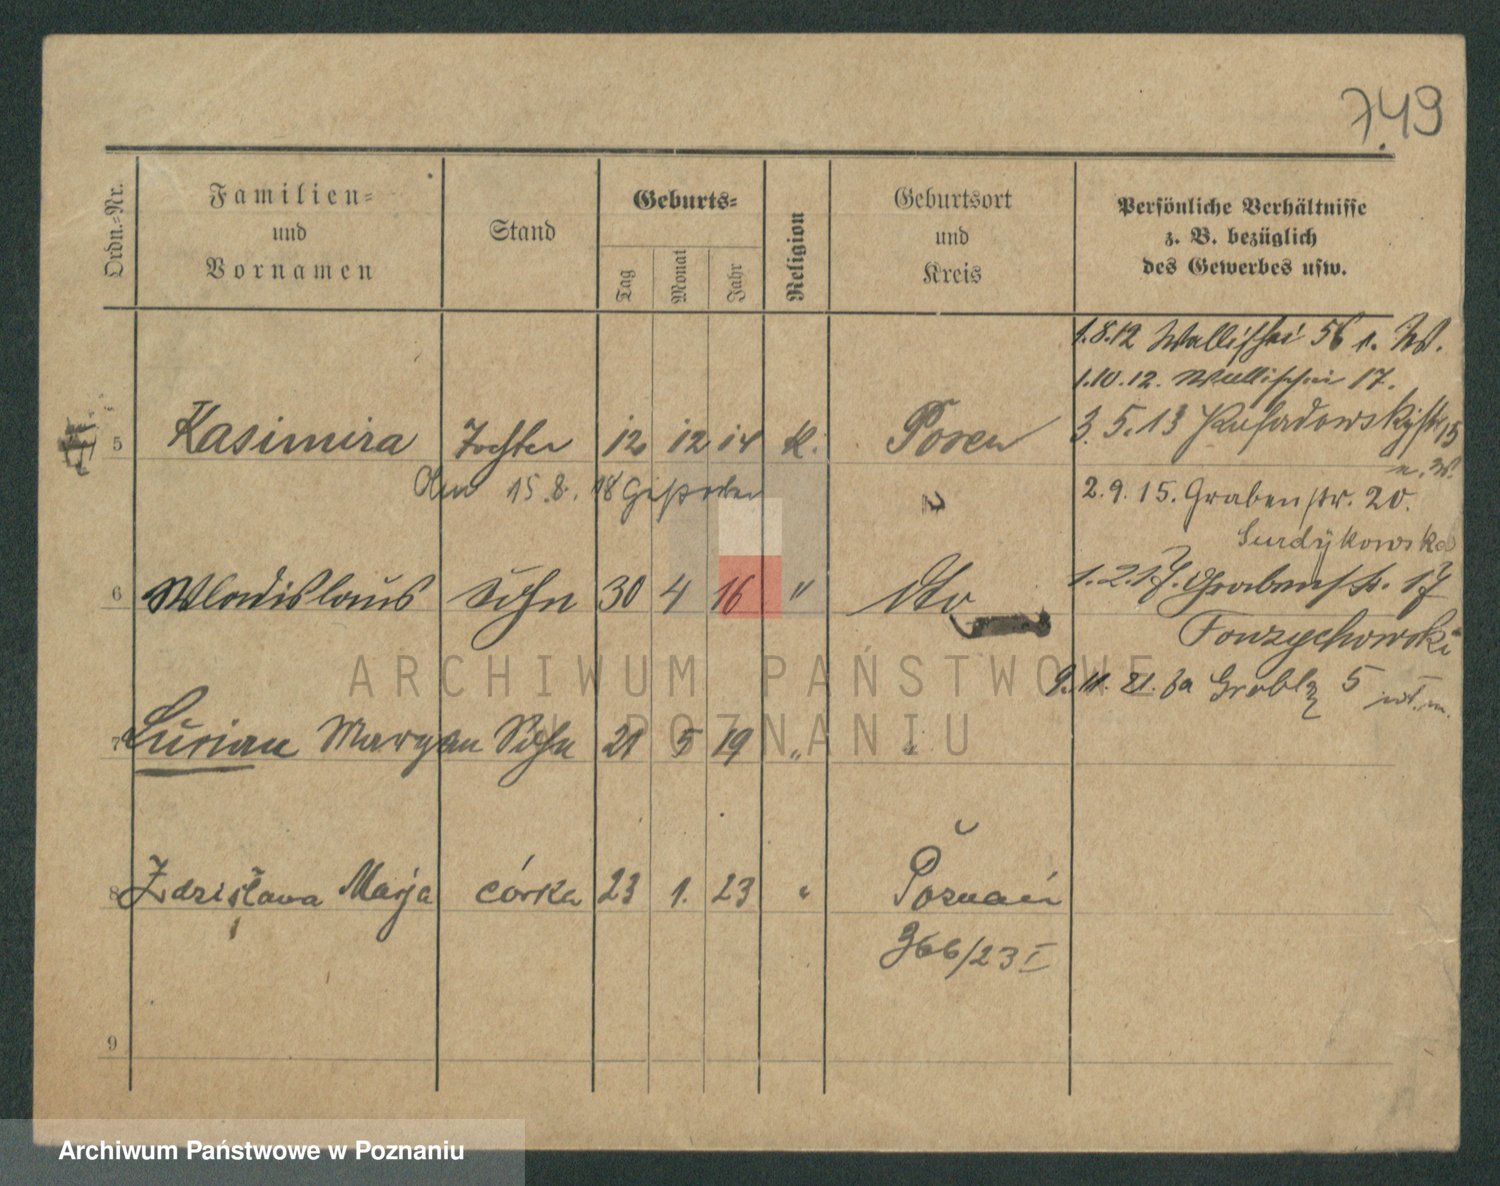 749
Ordn.=Nr.
Familien=
und
Vornamen
Stand
Geburts=
Tag
Monat
Jahr
Religion
Geburtsort
und
Kreis
Persönliche Verhältnisse
z. B. bezüglich
des Gewerbes usw.
1.8.12 Wallischei 56 1. W.
1.10.12. Wallischei 17.
5 Kasimira Tochter 12 12 14 K. Posen
3.5.13
15
15.8.18
2.9.15. Grabenstr. 20.
Surdykowska
6 Wladislaus Sohn 30 4 16 " dto
1.2.17. Grabenstr. 17
9.11.21. Grobla 5
ARCHIWUM PAŃSTWOWE
W POZNANIU
7 Lucian Maryan Sohn 21 5 19 " "
8 Zdzisława Marja córka 23 1. 23 " Poznań
366/23 I
9
Archiwum Państwowe w Poznaniu